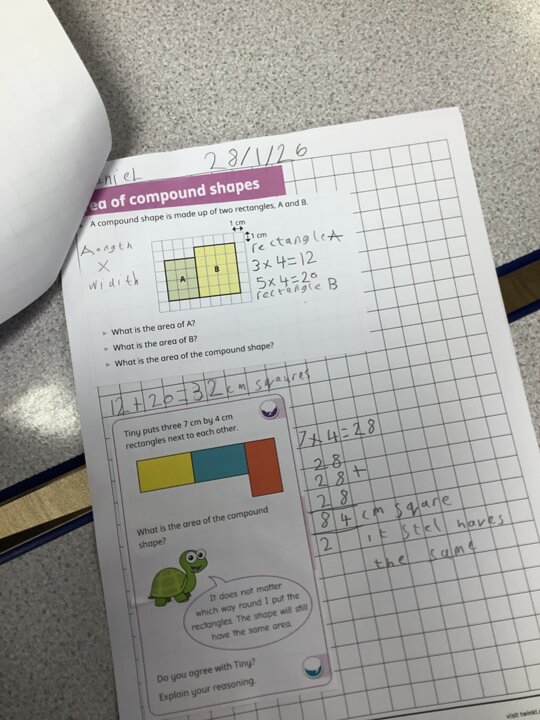 niel
28/1/26
ea of compound shapes
A compound shape is made up of two rectangles, A and B.
1 cm
1 cm
Langth
X
widith
A
B
rectangle A
3x4=12
5x4=20
rectangle B
What is the area of A?
What is the area of B?
What is the area of the compound shape?
12+20=32cm sqaures
Tiny puts three 7 cm by 4 cm
rectangles next to each other.
What is the area of the compound
shape?
It does not matter
which way round I put the
rectangles. The shape will still
have the same area.
Do you agree with Tiny?
Explain your reasoning.
7x4=28
28
28+
28
84 cm sqare
2
it stel haves
the same
visit twinkl.